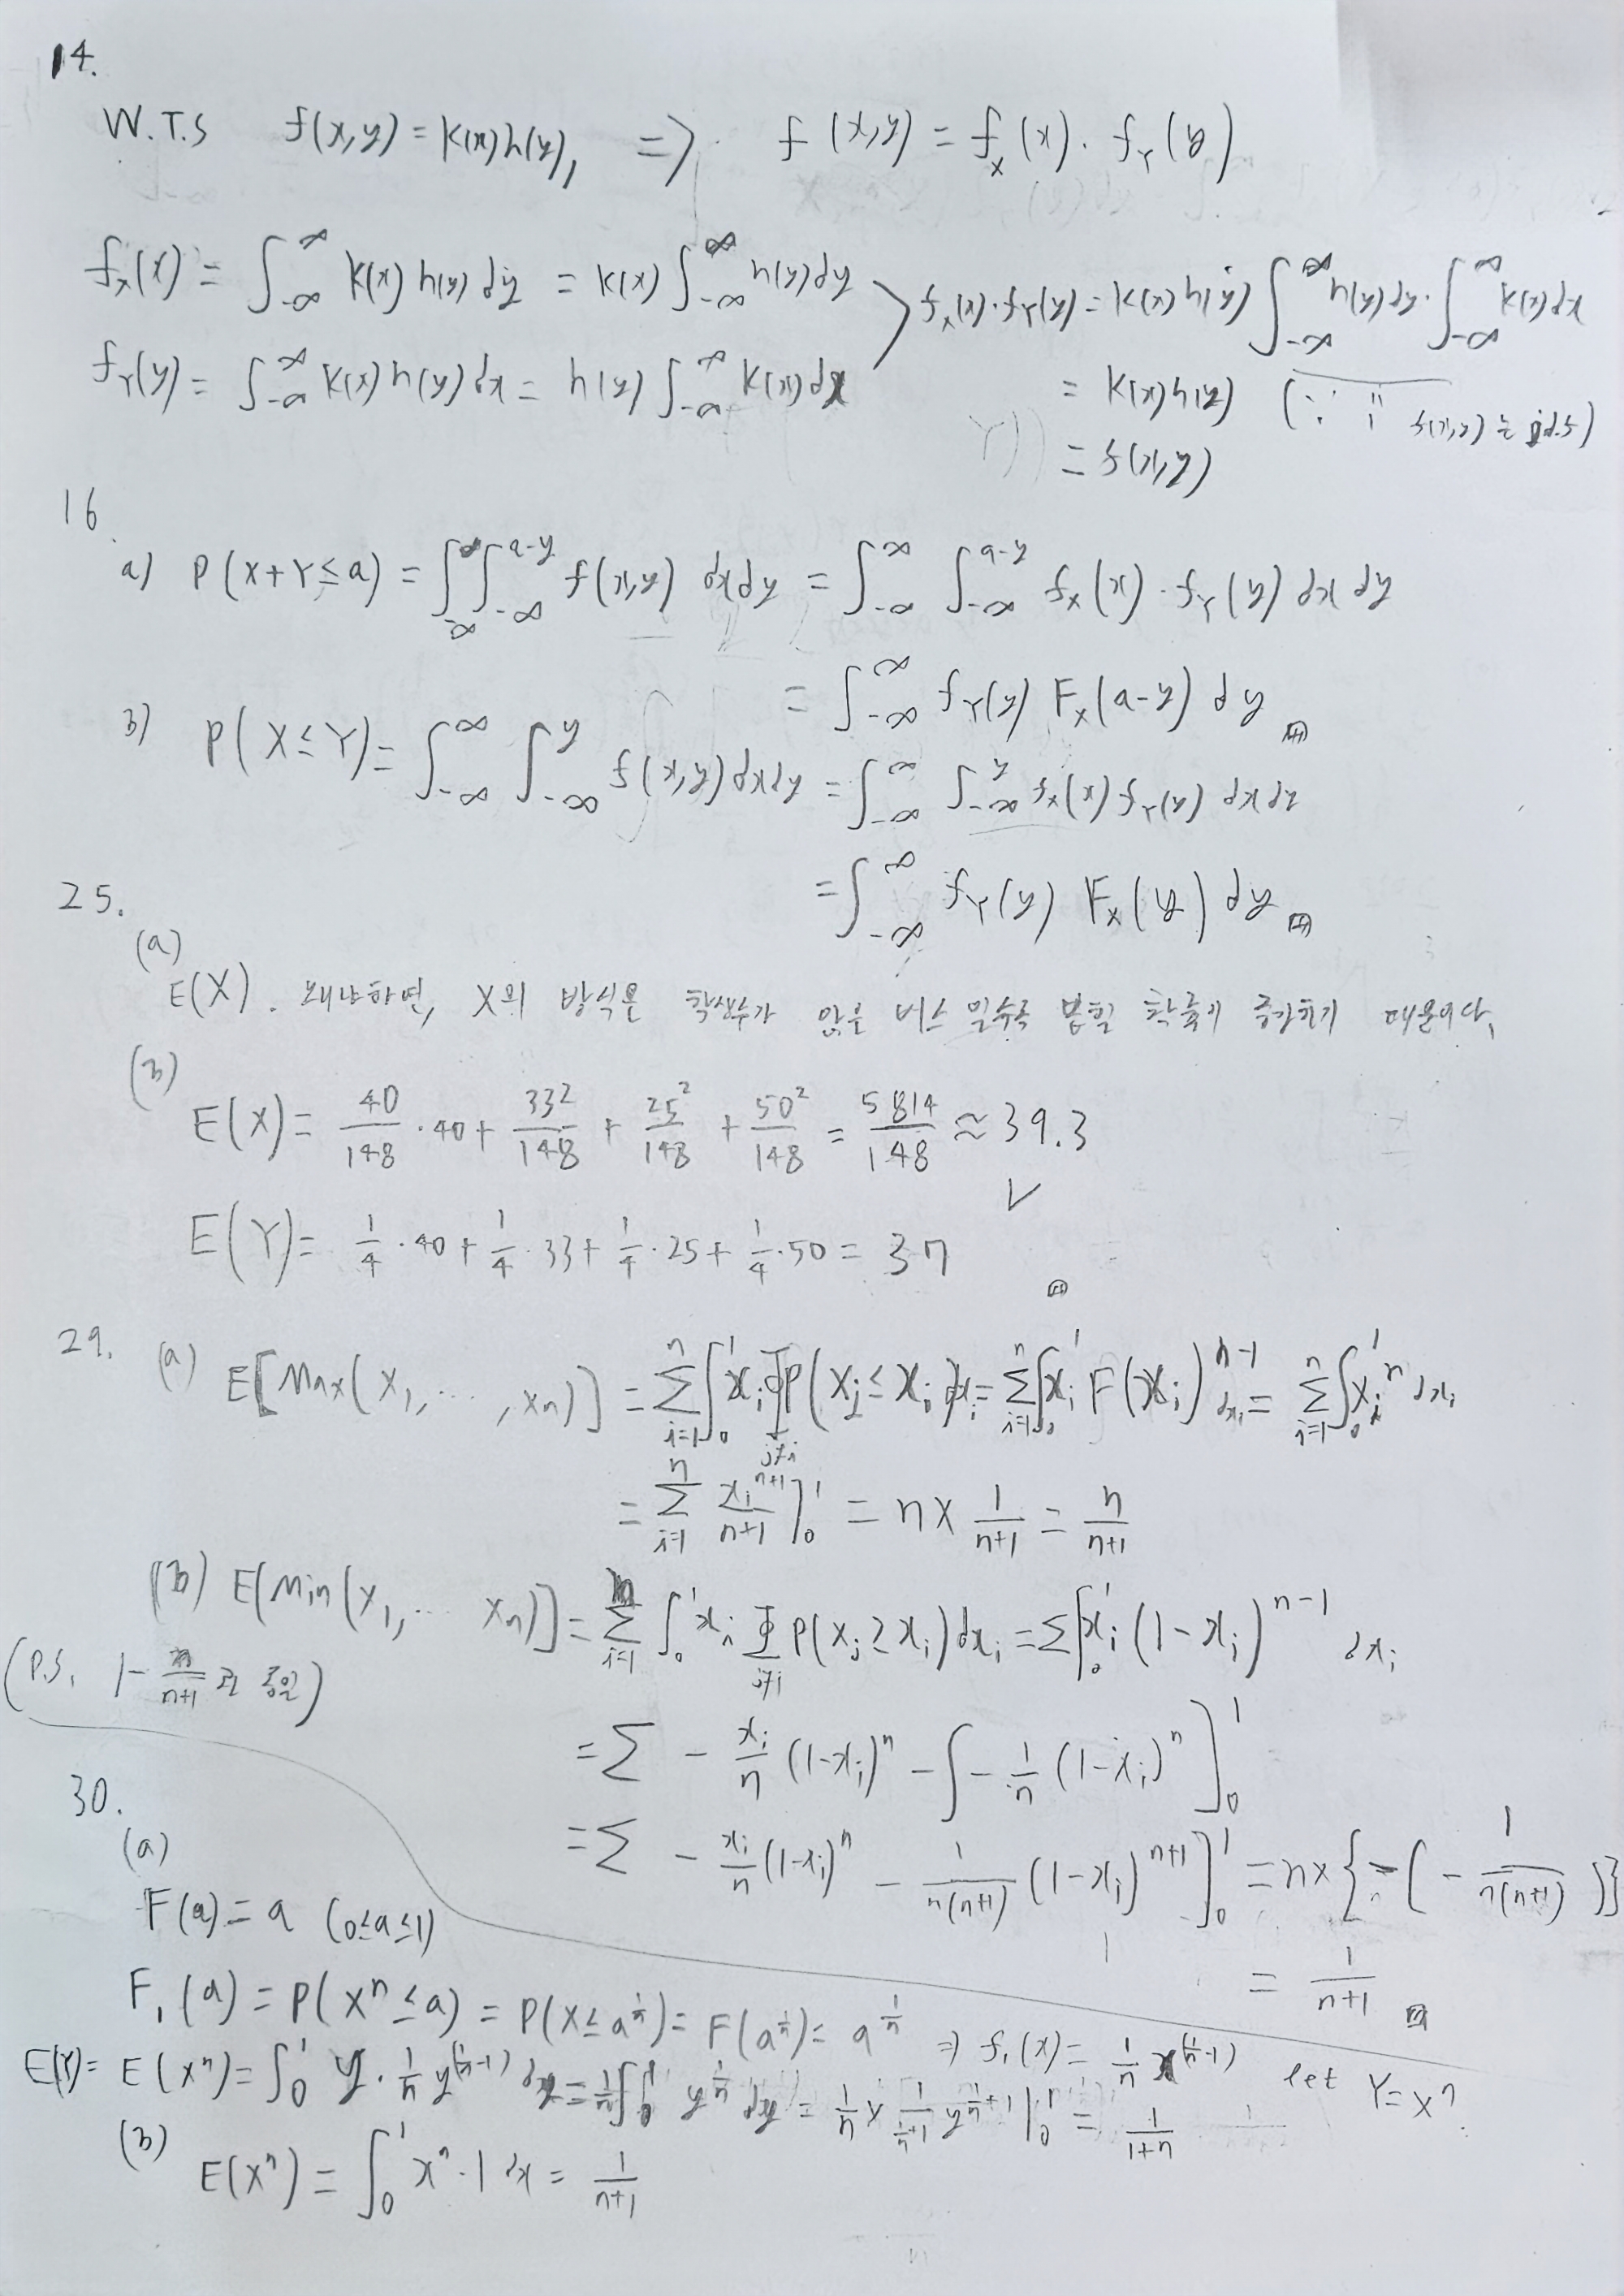 14.
W.T.S f(x,y) = k(x)h(y), => f(x,y) = f_X(x)·f_Y(y)
f_X(x) = ∫_{-∞}^{∞} k(x)h(y)dy = k(x)∫_{-∞}^{∞} h(y)dy
f_Y(y) = ∫_{-∞}^{∞} k(x)h(y)dx = h(y)∫_{-∞}^{∞} k(x)dx
> f_X(x)·f_Y(y) = k(x)h(y)∫_{-∞}^{∞} h(y)dy·∫_{-∞}^{∞} k(x)dx
= k(x)h(y) (∵ 1 f(x,y)는 p.d.f)
= f(x,y)
16
a) P(X+Y≤a) = ∫_{-∞}^{∞}∫_{-∞}^{a-y} f(x,y) dxdy = ∫_{-∞}^{∞}∫_{-∞}^{a-y} f_X(x)·f_Y(y) dx dy
= ∫_{-∞}^{∞} f_Y(y) F_X(a-y) dy
b) P(X≤Y) = ∫_{-∞}^{∞}∫_{-∞}^{y} f(x,y)dxdy = ∫_{-∞}^{∞}∫_{-∞}^{y} f_X(x)f_Y(y) dxdy
= ∫_{-∞}^{∞} f_Y(y) F_X(y) dy
25.
(a)
E(X). 왜냐하면, X의 방식은 학생수가 많은 버스 일수록 뽑힐 확률이 증가하기 때문이다.
(b)
E(X) = 40/148·40 + 33²/148 + 25²/148 + 50²/148 = 5814/148 ≈ 39.3
E(Y) = 1/4·40 + 1/4·33 + 1/4·25 + 1/4·50 = 37
29. (a) E[Max(X₁,…,Xn)] = Σ_{i=1}^{n}∫_0^1 x_i ∏_{j≠i} P(X_j≤x_i)dx_i = Σ_{i=1}^{n}∫_0^1 x_i F(x_i)^{n-1} dx_i = Σ_{i=1}^{n}∫_0^1 x_i^n dx_i
= Σ_{i=1}^{n} x_i^{n+1}/(n+1) ]_0^1 = n × 1/(n+1) = n/(n+1)
(b) E[Min(X₁,… Xn)] = Σ_{i=1}^{n} ∫_0^1 x_i ∏_{j≠i} P(X_j≥x_i)dx_i = Σ∫_0^1 x_i (1-x_i)^{n-1} dx_i
(P.S. 1 - n/(n+1) 과 동일)
= Σ - x_i/n (1-x_i)^n - ∫ - 1/n (1-x_i)^n ]_0^1
= Σ - x_i/n (1-x_i)^n - 1/(n(n+1)) (1-x_i)^{n+1} ]_0^1 = n×{-(- 1/(n(n+1)))}
= 1/(n+1)
30.
(a)
F(a) = a (0≤a≤1)
F₁(a) = P(X^n≤a) = P(X≤a^{1/n}) = F(a^{1/n}) = a^{1/n} ⇒ f₁(x) = 1/n x^{(1/n-1)} let Y=X^n
E(Y) = E(X^n) = ∫_0^1 y·1/n y^{(1/n-1)} dy = 1/n∫_0^1 y^{1/n} dy = 1/n × 1/(1/n+1) y^{1/n+1} |_0^1 = 1/(1+n)
(b)
E(X^n) = ∫_0^1 x^n·1 dx = 1/(n+1)